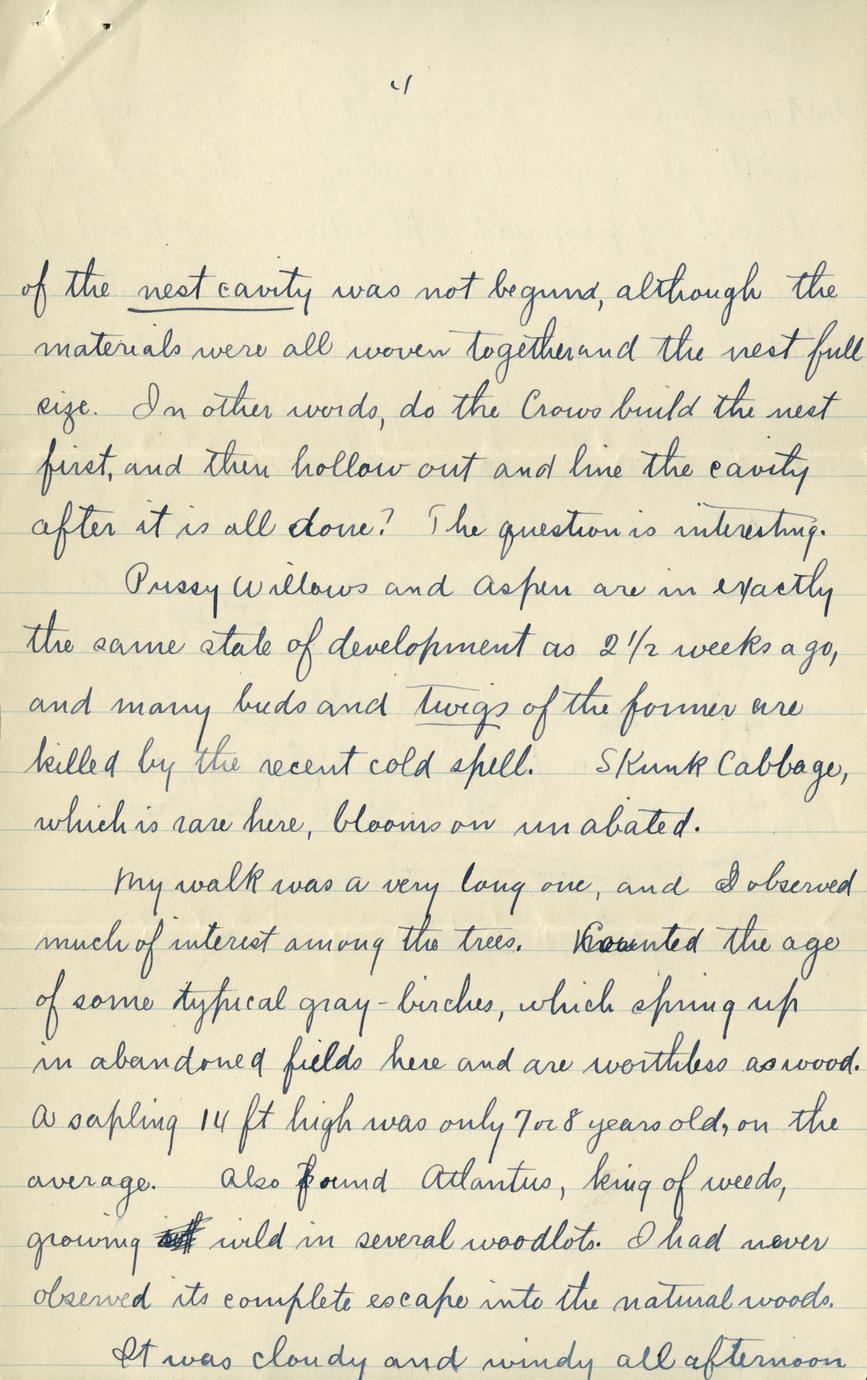 4
of the nest cavity was not begund, although the
materials were all woven together and the nest full
size. In other words, do the Crows build the nest
first, and then hollow out and line the cavity
after it is all done? The question is interesting.
Pussy Willows and Aspen are in exactly
the same state of development as 2 1/2 weeks ago,
and many buds and twigs of the former are
killed by the recent cold spell. Skunk Cabbage,
which is rare here, blooms on unabated.
My walk was a very long one, and I observed
much of interest among the trees. Counted the age
of some typical gray-birches, which spring up
in abandoned fields here and are worthless as wood.
A sapling 14 ft high was only 7 or 8 years old, on the
average. Also found Atlantus, king of weeds,
growing wild in several woodlots. I had never
observed its complete escape into the natural woods.
It was cloudy and windy all afternoon